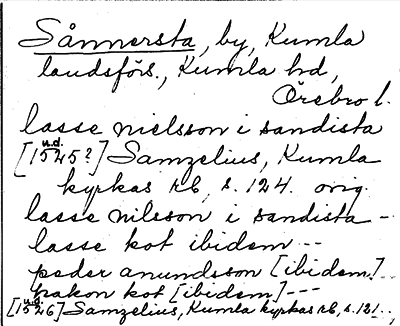 Sånnersta, by, Kumla
landsförs., Kumla hd,
Örebro l.
lasse nielsson i sandista
u.d.
[1525?] Samzelius, Kumla
kyrkas rb, s. 124. orig.
lasse nilsson i sandista -
lasse kot ibidem --
peder anundsson [ibidem] --
hakon kot [ibidem] ---
u.d.
[1526] Samzelius, Kumla kyrkas rb, s. 121..,